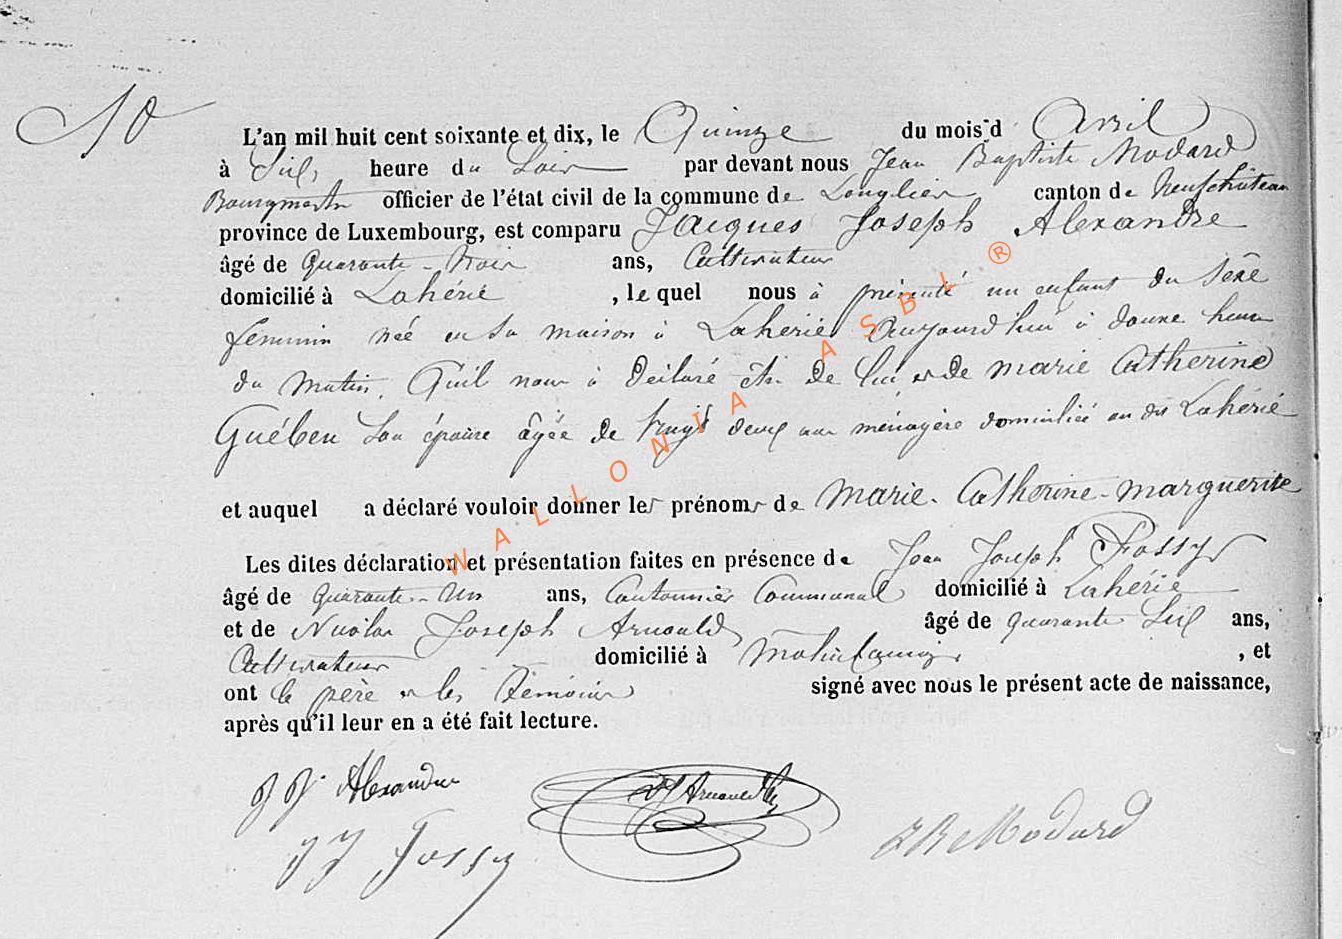 10
L'an mil huit cent soixante et dix, le Quinze du mois d'Avril
à Six heure du Soir par devant nous Jean Baptiste Modard
Bourgmestre officier de l'état civil de la commune de Longlier canton de Neufchâteau
province de Luxembourg, est comparu Jacques Joseph Alexandre
âgé de Quarante-trois ans, Cultivateur
domicilié à Lahérie, lequel nous à présenté un enfant du Sexe
feminin née en sa maison à Lahérie Aujourd'hui à douze heure
du matin. Qu'il nous à déclaré être de lui et de marie Catherine
Guében Son épouse âgée de vingt deux ans ménagère domiciliée au dit Lahérié
et auquel a déclaré vouloir donner les prénoms de Marie-Catherine-marguerite
Les dites déclaration et présentation faites en présence de Jean Joseph Fossy
âgé de Quarante-un ans, Cantonnier Communal domicilié à Lahérie
et de Nicolas Joseph Arnould âgé de quarante Six ans,
Cultivateur domicilié à Molinfaing, et
ont le père et les témoins signé avec nous le présent acte de naissance,
après qu'il leur en a été fait lecture.
J J Alexandre
Arnould
J J Fossy
J B Modard
WALLONIA ASBL ®